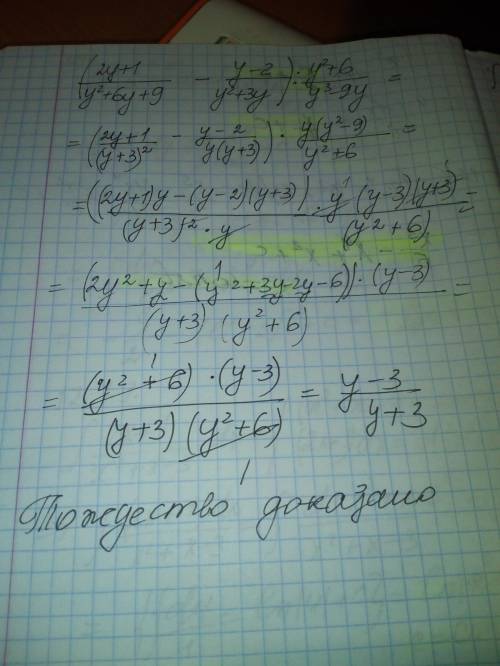 ((2y+1)/(y²+6y+9) − (y−2)/(y²+3y)) : (y²+6)/(y³−9y) =
= ((2y+1)/(y+3)² − (y−2)/(y(y+3))) · y(y²−9)/(y²+6) =
= ((2y+1)y−(y−2)(y+3)) · y(y−3)(y+3)/((y+3)²·y (y²+6)) =
= (2y²+y−(y²+3y−2y−6))·(y−3)/((y+3)(y²+6)) =
= (y²+6)·(y−3)/((y+3)(y²+6)) = (y−3)/(y+3)
Тождество доказано